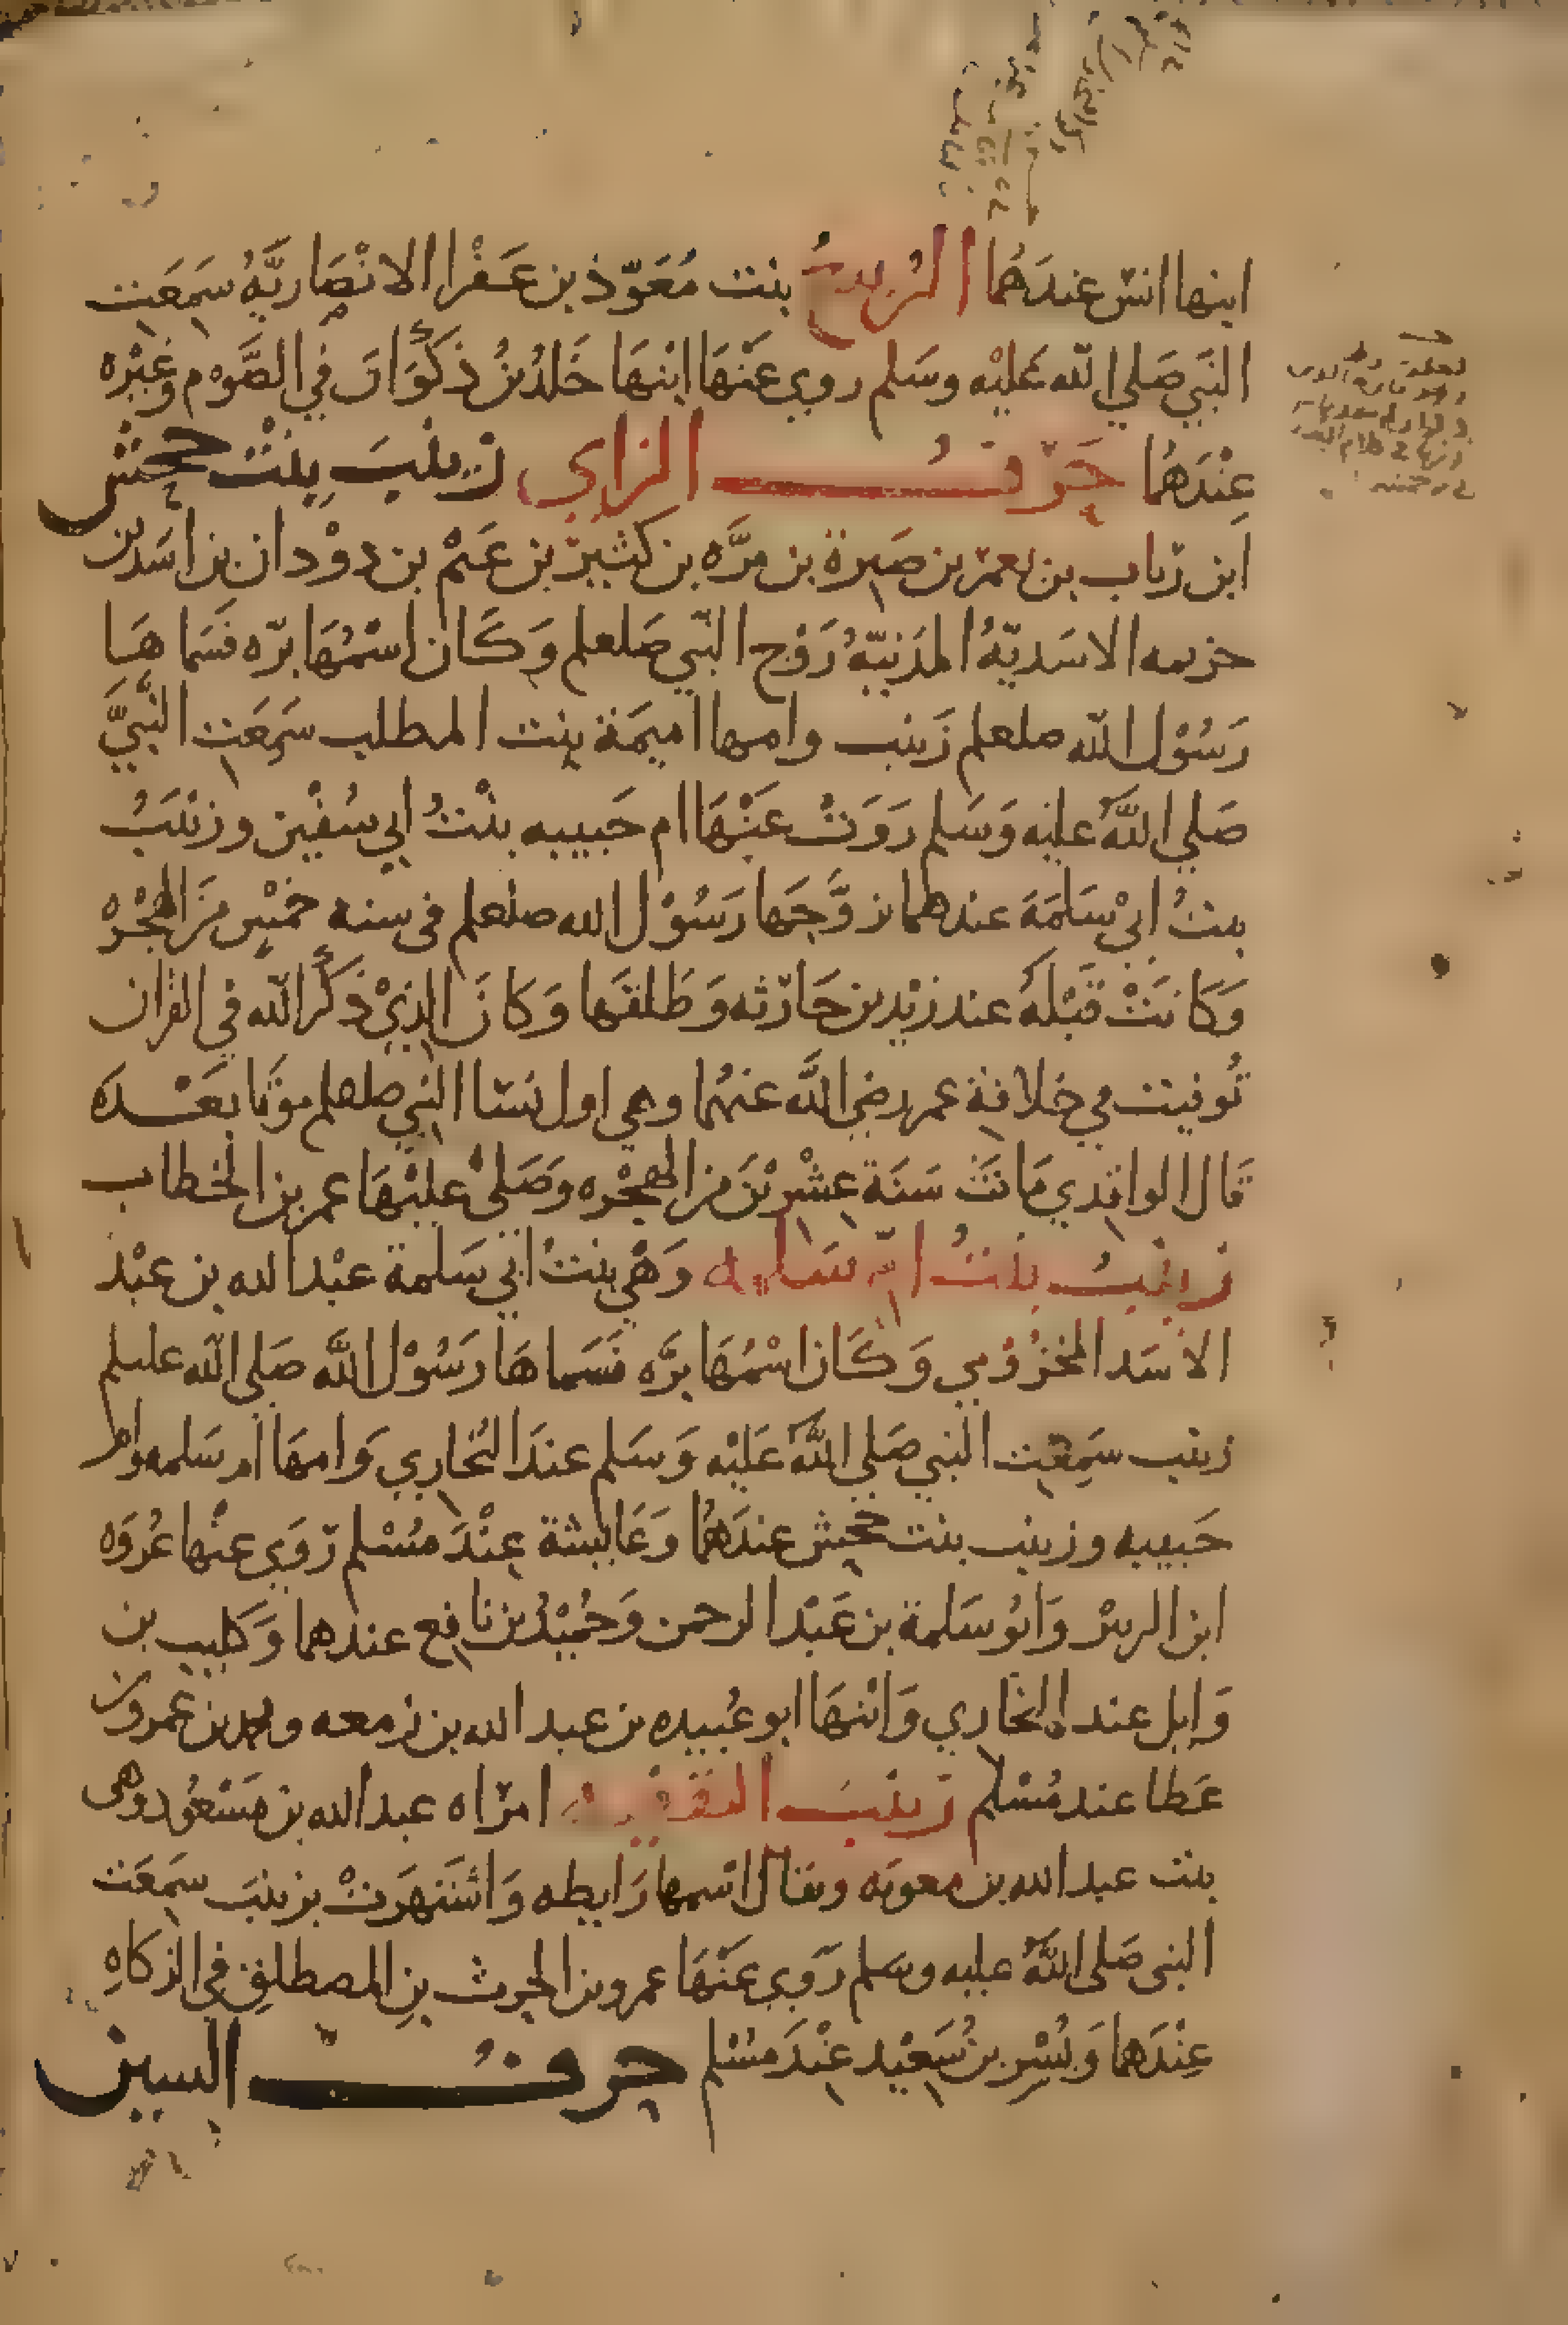 ابنها انس عندَهُما الرُبيعُ بنت مُعَوّذ بن عَفْرا الانْصَاريَّهُ سَمِعَت
النَبي صَلي الله عَليْه وسَلم روي عَنْهَا ابْنهَا خَلدُ بنُ ذَكْوَانَ في الصَّوْم وغيْره
عِنْدَهُما حَرْفُ الزاي زَيْنَبَ بِنْتُ جحش
ابن رياب بن يعمر بن صَبِرة بن مرَّه بن كثيِرْ بن غَنْم بن دوْدان بن اسَد بن
خزيمه الاسَديّهُ المدَنيّهُ زَوْج النبّي صَلعلم وَكَان اسْمُهَا برّه فسَماهَا
رَسُوْل الله صلعلم زَينب وامها اميمَة بنت المطلب سَمِعَت النَّبيَّ
صَلي اللَّهُ عليه وَسَلم رَوَتْ عَنْهَا ام حَبيبه بنْتُ ابي سُفيْن وزيْنَبُ
بنتُ ابيْ سَلَمَة عندهما تزوَّجَها رَسُوْل الله صلعلم فى سنه خمْسٍ مِنَ الهجْرْه
وَكَانَتْ قَبْلَهُ عند زيْد بن حَارثه وَطَلقَها وَكَانَ الذيْ ذكَرَ الله في القران
تُوفيت في خلافة عمر رضي اللَّه عنهُما وهي اول نسَا النبي صلعلم موتا بَعْدَه
قَال الواقدي مَاتَتْ سَنَة عِشْرِيْنَ من الهجْره وَصَلىْ عليْهَا عمر بن الخطاب
زينبُ بنتُ امّ سَلمه وَهْي بنتُ ابي سَلمة عبْد الله بن عبْد
الاسَد المخزُوْمي وَكَان اسْمُهَا برَّه فسَماهَا رَسُوْل اللَّه صَلى الله عليلم
زينب سَمِعَت النبي صَلي اللَّهُ عَليْه وَسَلم عندَ البُخاري وَامهَا ام سَلمه وام
حَبيبه وزينب بنت جحِش عندَهُما وَعَايشة عِنْدَ مسْلم رَوَي عنْها عُروَه
ابن الزبير وَابُو سَلمة بن عَبْد الرحمن وَحُمَيْدُ بن نافِع عندهما وَكليب بن
وَايل عند البخاري وَابْنهَا ابو عُبيده بن عبد الله بن زمعه ومحمد بن عَمرو بن
عَطا عند مُسْلم زَينَبَ الثقفيه امرَاه عبد الله بن مَسْعُود وهى
بنت عبد الله بن معويَه ويقال اسمها رَايطه وَاشتَهرَتْ بزينبَ سمِعَت
النبى صَلى اللَّهُ عليه وسَلم رَوَي عَنْهَا عمرو بن الحرث بنِ المصطلِقِ في الزكاهِ
عِنْدَهما وَبُسْرِ بنُ سَعِيْد عِنْدَ مسْلم حرفُ السين